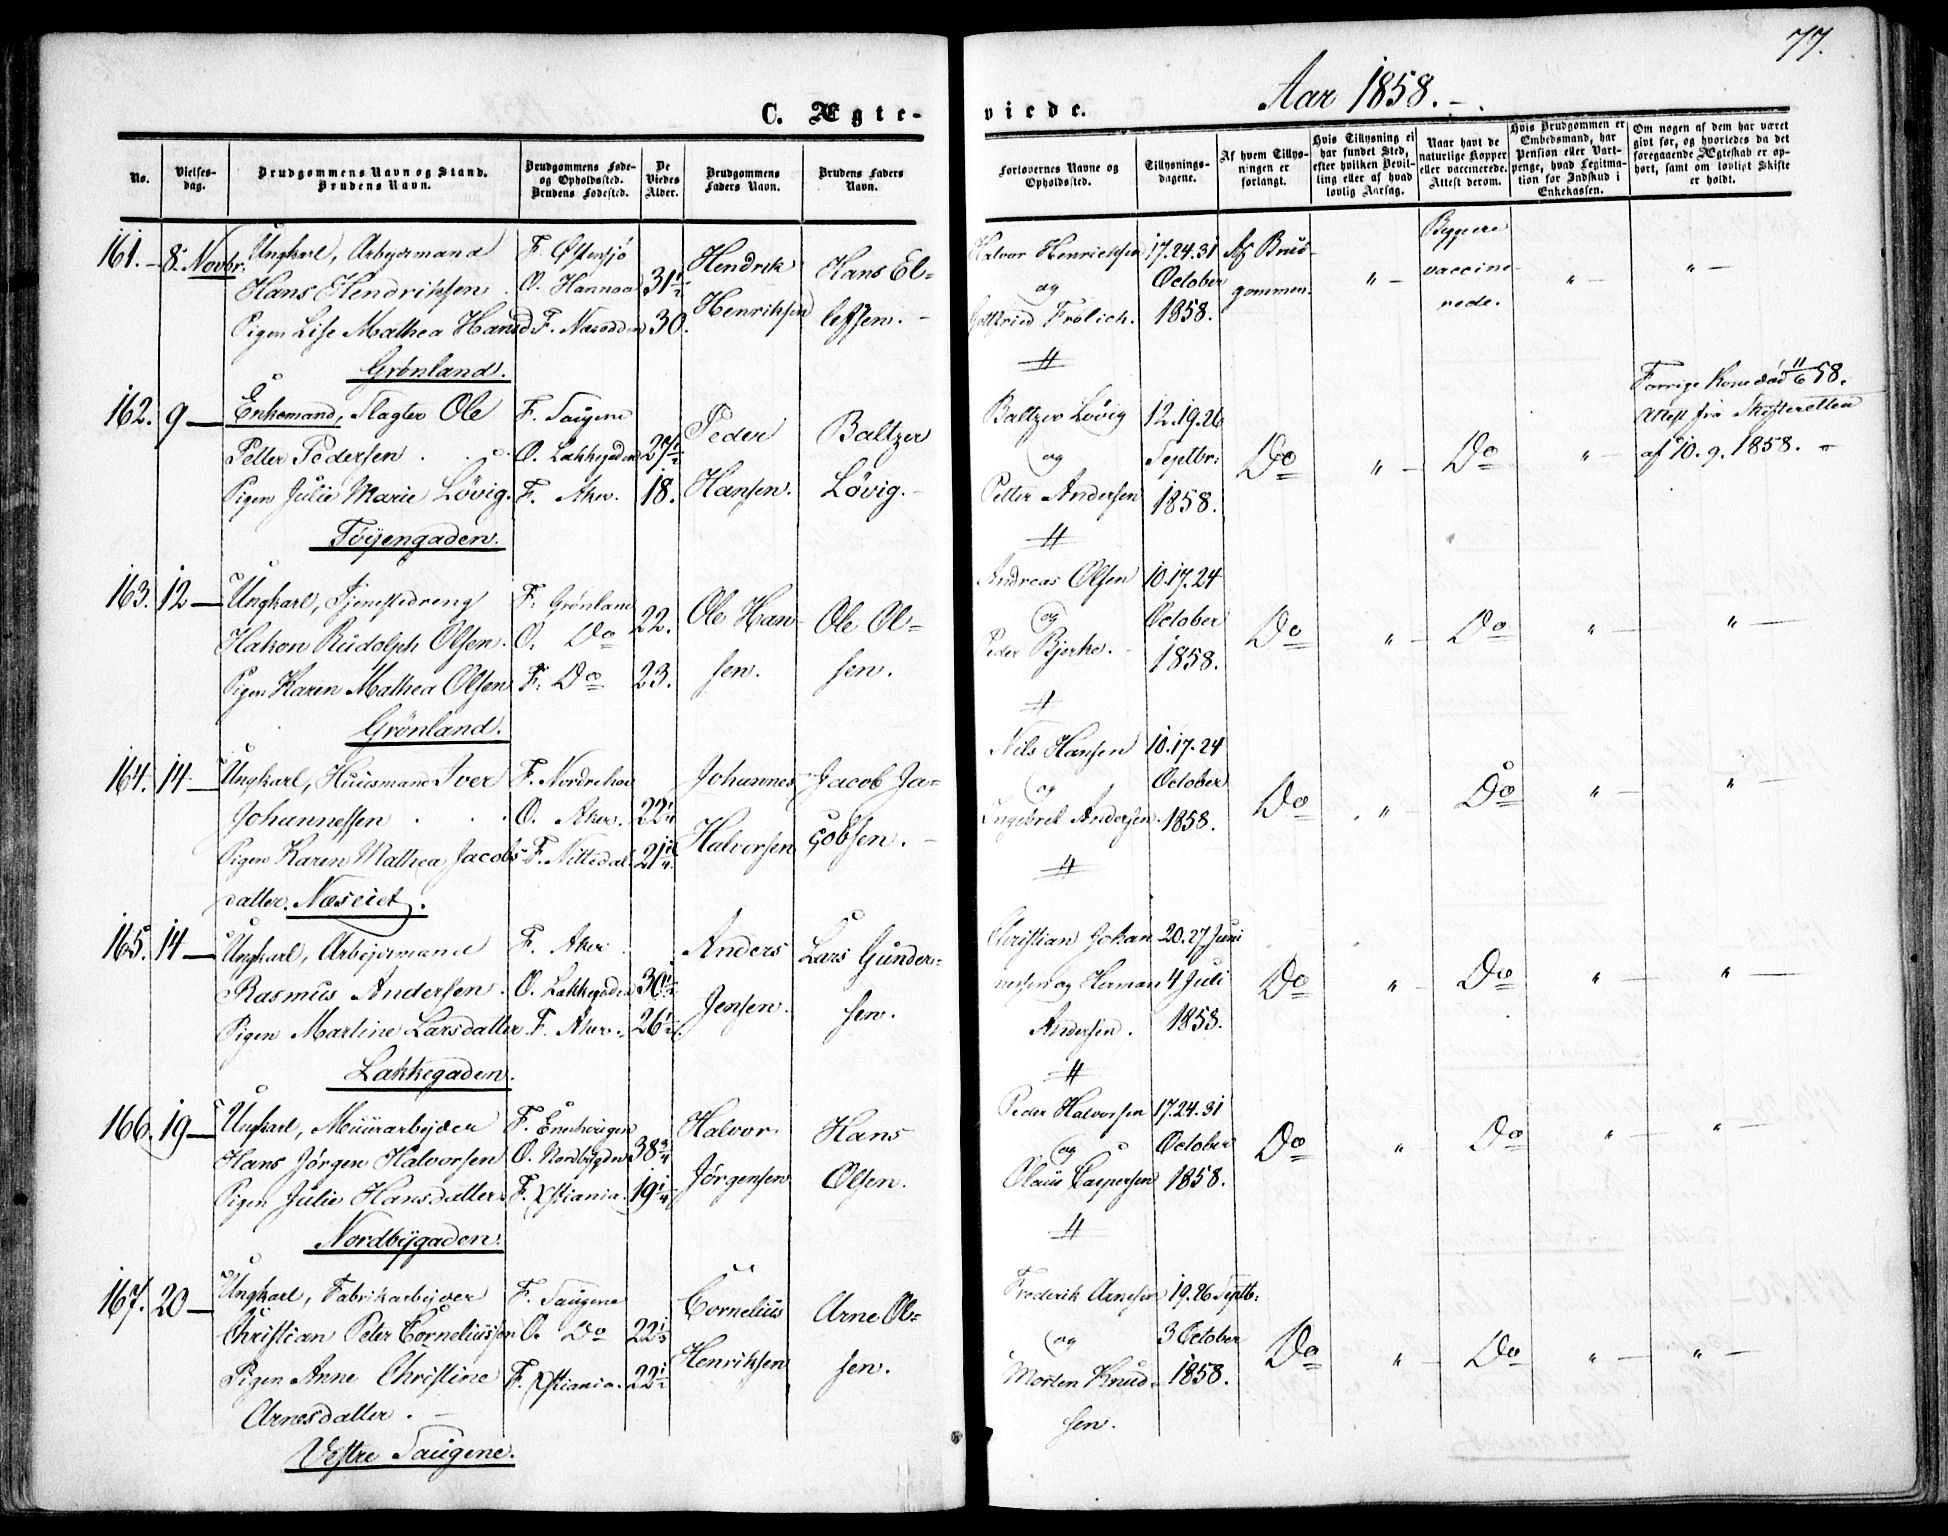 77.
Aar 1858.
C. Ægte-
viede.
No.
Vielses-
dag.
Brudgommens Navn og Stand.
Brudens Navn.
Brudgommens Føde-
og Opholdssted.
Brudens Fødested.
De
Viedes
Alder.
Brudgommens
Faders Navn.
Brudens Faders
Navn.
Forlovernes Navne og
Opholdssted.
Tillysnings-
dagene.
Af hvem Tillys-
ningen er
forlangt.
Hvis Tillysning ei
har fundet Sted,
efter hvilken Bevil-
ling eller af hvad
lovlig Aarsag.
Naar havt de
naturlige Kopper
eller vaccinerede.
Attest derom.
Hvis Brudgommen er
Embedsmand, har
Pension eller Vart-
penge, hvad Legitima-
tion for Indskud i
Enkekassen.
Om nogen af dem har været
givt før, og hvorledes da det
foregaaende Ægteskab er op-
hørt, samt om lovligt Skifte
er holdt.
161. 8. Novbr.
Ungkarl, Arbejdsmand
Hans Hendriksen
Pigen Lise Mathea Hansd.
Grønland.
F. Østensjø
O. Hannoa 31½
F. Næsodden 30.
Hendrik
Henriksen
Hans El-
lefsen.
Halvor Henriksen
og
Gottfried Frølich.
17. 24. 31
October
1858.
Af Brud-
gommen.
" —
Begge
vaccine-
rede.
" —
" —
162. 9 —
Enkemand, Slagter Ole
Petter Pedersen
Pigen Julie Marie Løvig.
Tøyengaden.
F. Saugene
O. Lakkegaden
F. Aker. 18.
Peder
Hansen.
Baltzer
Løvig.
Baltzer Løvig
og
Petter Andersen
12. 19. 26
Septbr:
1858.
Do
" —
Do
" —
Forrige Kone død 11/6 58.
Attest fra Skifteretten
af 10. 9. 1858.
163. 12 —
Ungkarl, Tjenestedreng
Hakon Rudolph Olsen.
Pigen Karen Mathea Olsen
Grønland.
F. Grønland
O. Do 22.
F. Do 23.
Ole Han-
sen.
Ole Ol-
sen.
Andreas Olsen
og
Peder Bjerke.
10. 17. 24
October
1858.
Do
" —
Do
" —
" —
164. 14 —
Ungkarl, Huusmand Iver
Johannessen
Pigen Karen Mathea Jacobs-
datter. Næseiet.
F. Nordrehov
O. Aker. 22¼
F. Nittedal 21
Johannes
Halvorsen
Jacob Ja-
cobsen.
Nils Hansen
og
Engebret Andersen
10. 17. 24
October
1858.
Do
" —
Do
" —
" —
165. 14 —
Ungkarl, Arbejdsmand
Rasmus Andersen.
Pigen Martine Larsdatter
Lakkegaden.
F. Aker
O. Lakkegaden 30½
F. Aker. 26½
Anders
Jensen.
Lars Gunder-
sen.
Christian Johan-
nesen og Herman
Andersen.
20. 27 Juni
4 Juli
1858.
Do
" —
Do
" —
" —
166. 19 —
Ungkarl, Muurarbejder
Hans Jørgen Halvorsen
Pigen Julie Hansdatter
Nordbygaden.
F. Enerhougen
O. Nordbygden 38¾
F. Xstiania. 19¼
Halvor
Jørgensen
Hans
Olsen.
Peder Halvorsen
og
Olaus Caspersen
17. 24. 31
October
1858.
Do
" —
Do
" —
" —
167. 20 —
Ungkarl, Fabrikarbejder
Christian Peter Corneliussen
Pigen Anne Christine
Arnesdatter.
Vestre Saugene.
F. Saugene
O. Do
F. Xstiania. 22½
Cornelius
Henriksen
Arne Ol-
sen.
Frederik Arnesen
og
Morten Knud-
sen.
19. 26 Septb:
3 October
1858.
Do
" —
Do
" —
" —